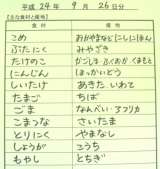 平成 24年 9月 26日分
【主な食材と産地】
食材 産地
こめ おかやまなどにしにほん
ぶたにく みやざき
たけのこ かごしま ふくおか くまもと
にんじん ほっかいどう
しいたけ あきた いわて
たまご ちば
ごま なんべい アフリカ
こまつな さいたま
とりにく やまなし
しょうが こうち
もやし とちぎ